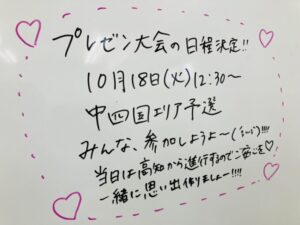 プレゼン大会の日程決定!!
10月18日(火)12:30〜
中四国エリア予選
みんな、参加しようよ〜(ﾟｰﾟ)!!!!
当日は高知から進行するのでご安心を♡
一緒に思い出作りましょー!!!!